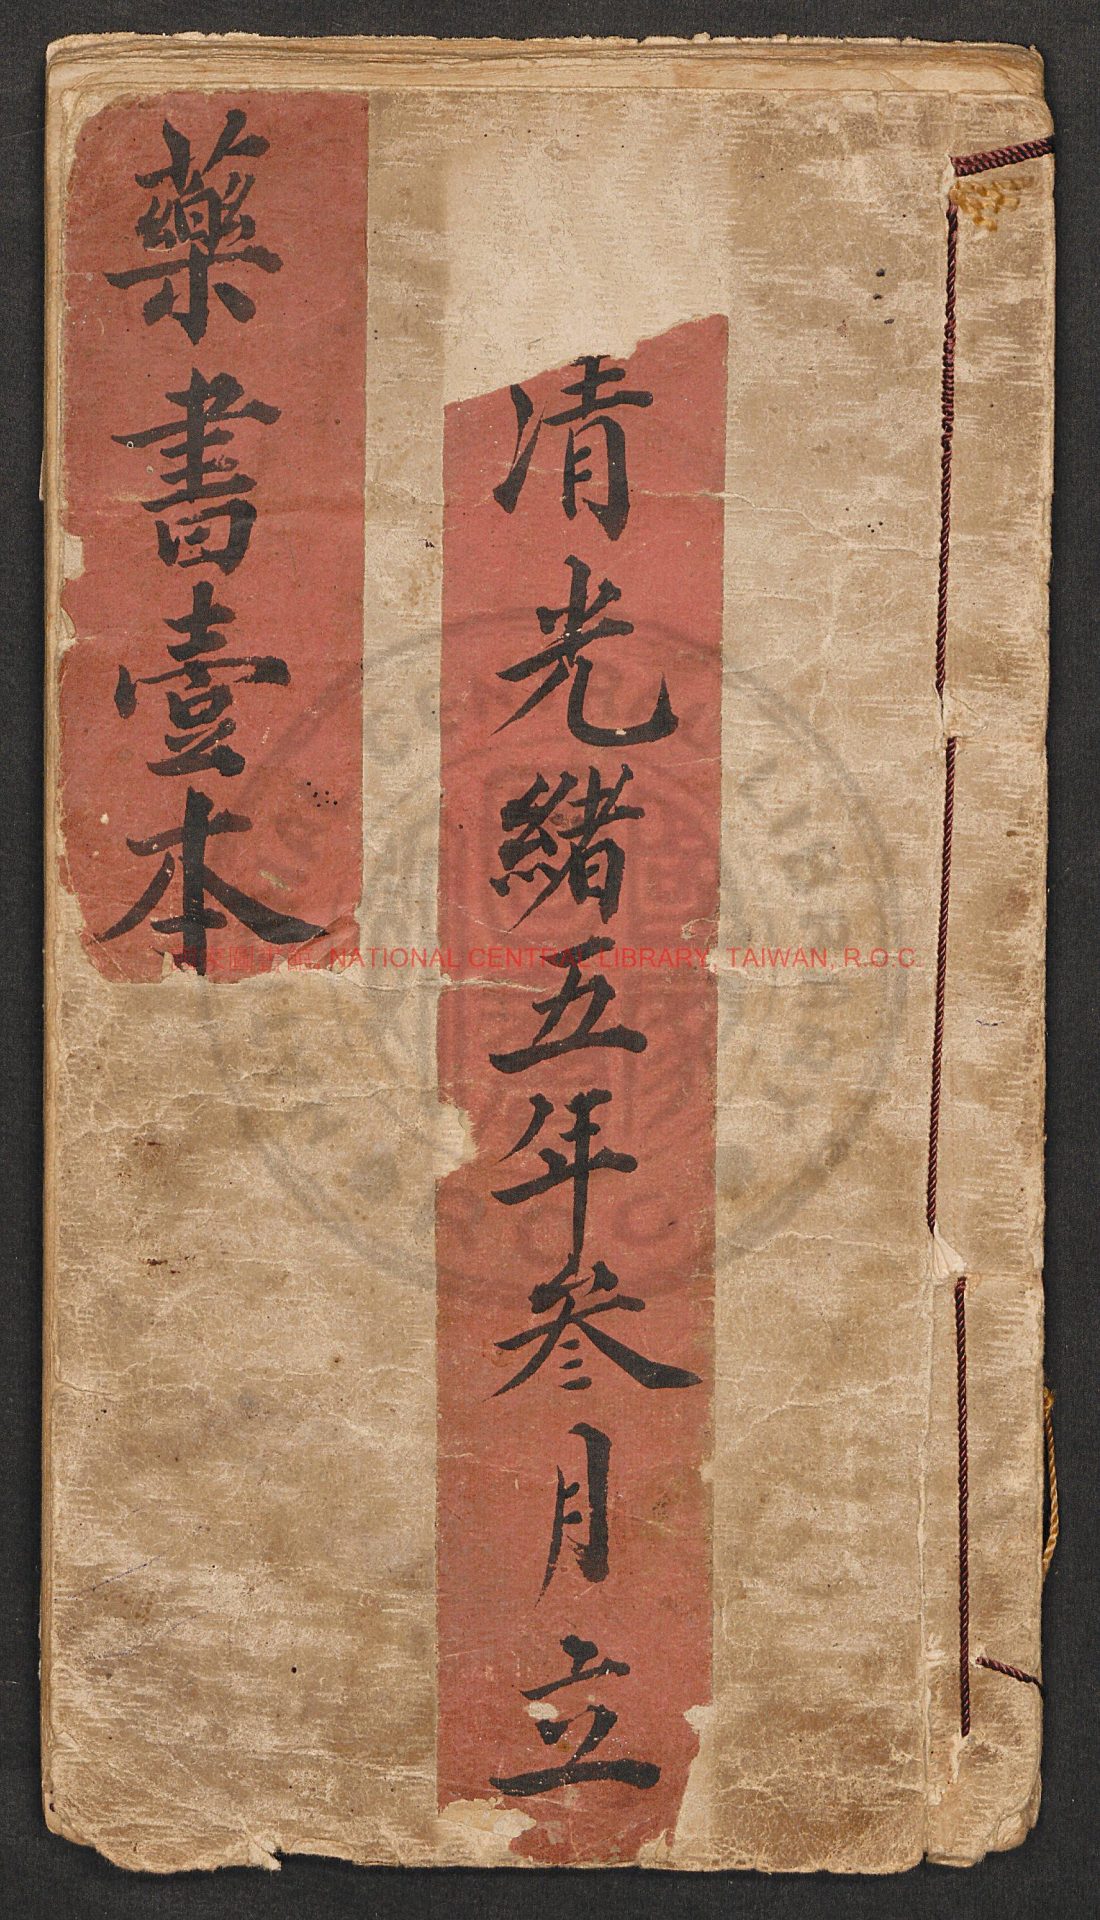 清光緒五年叁月立
藥書壹本
NATIONAL CENTRAL LIBRARY, TAIWAN, R.O.C.